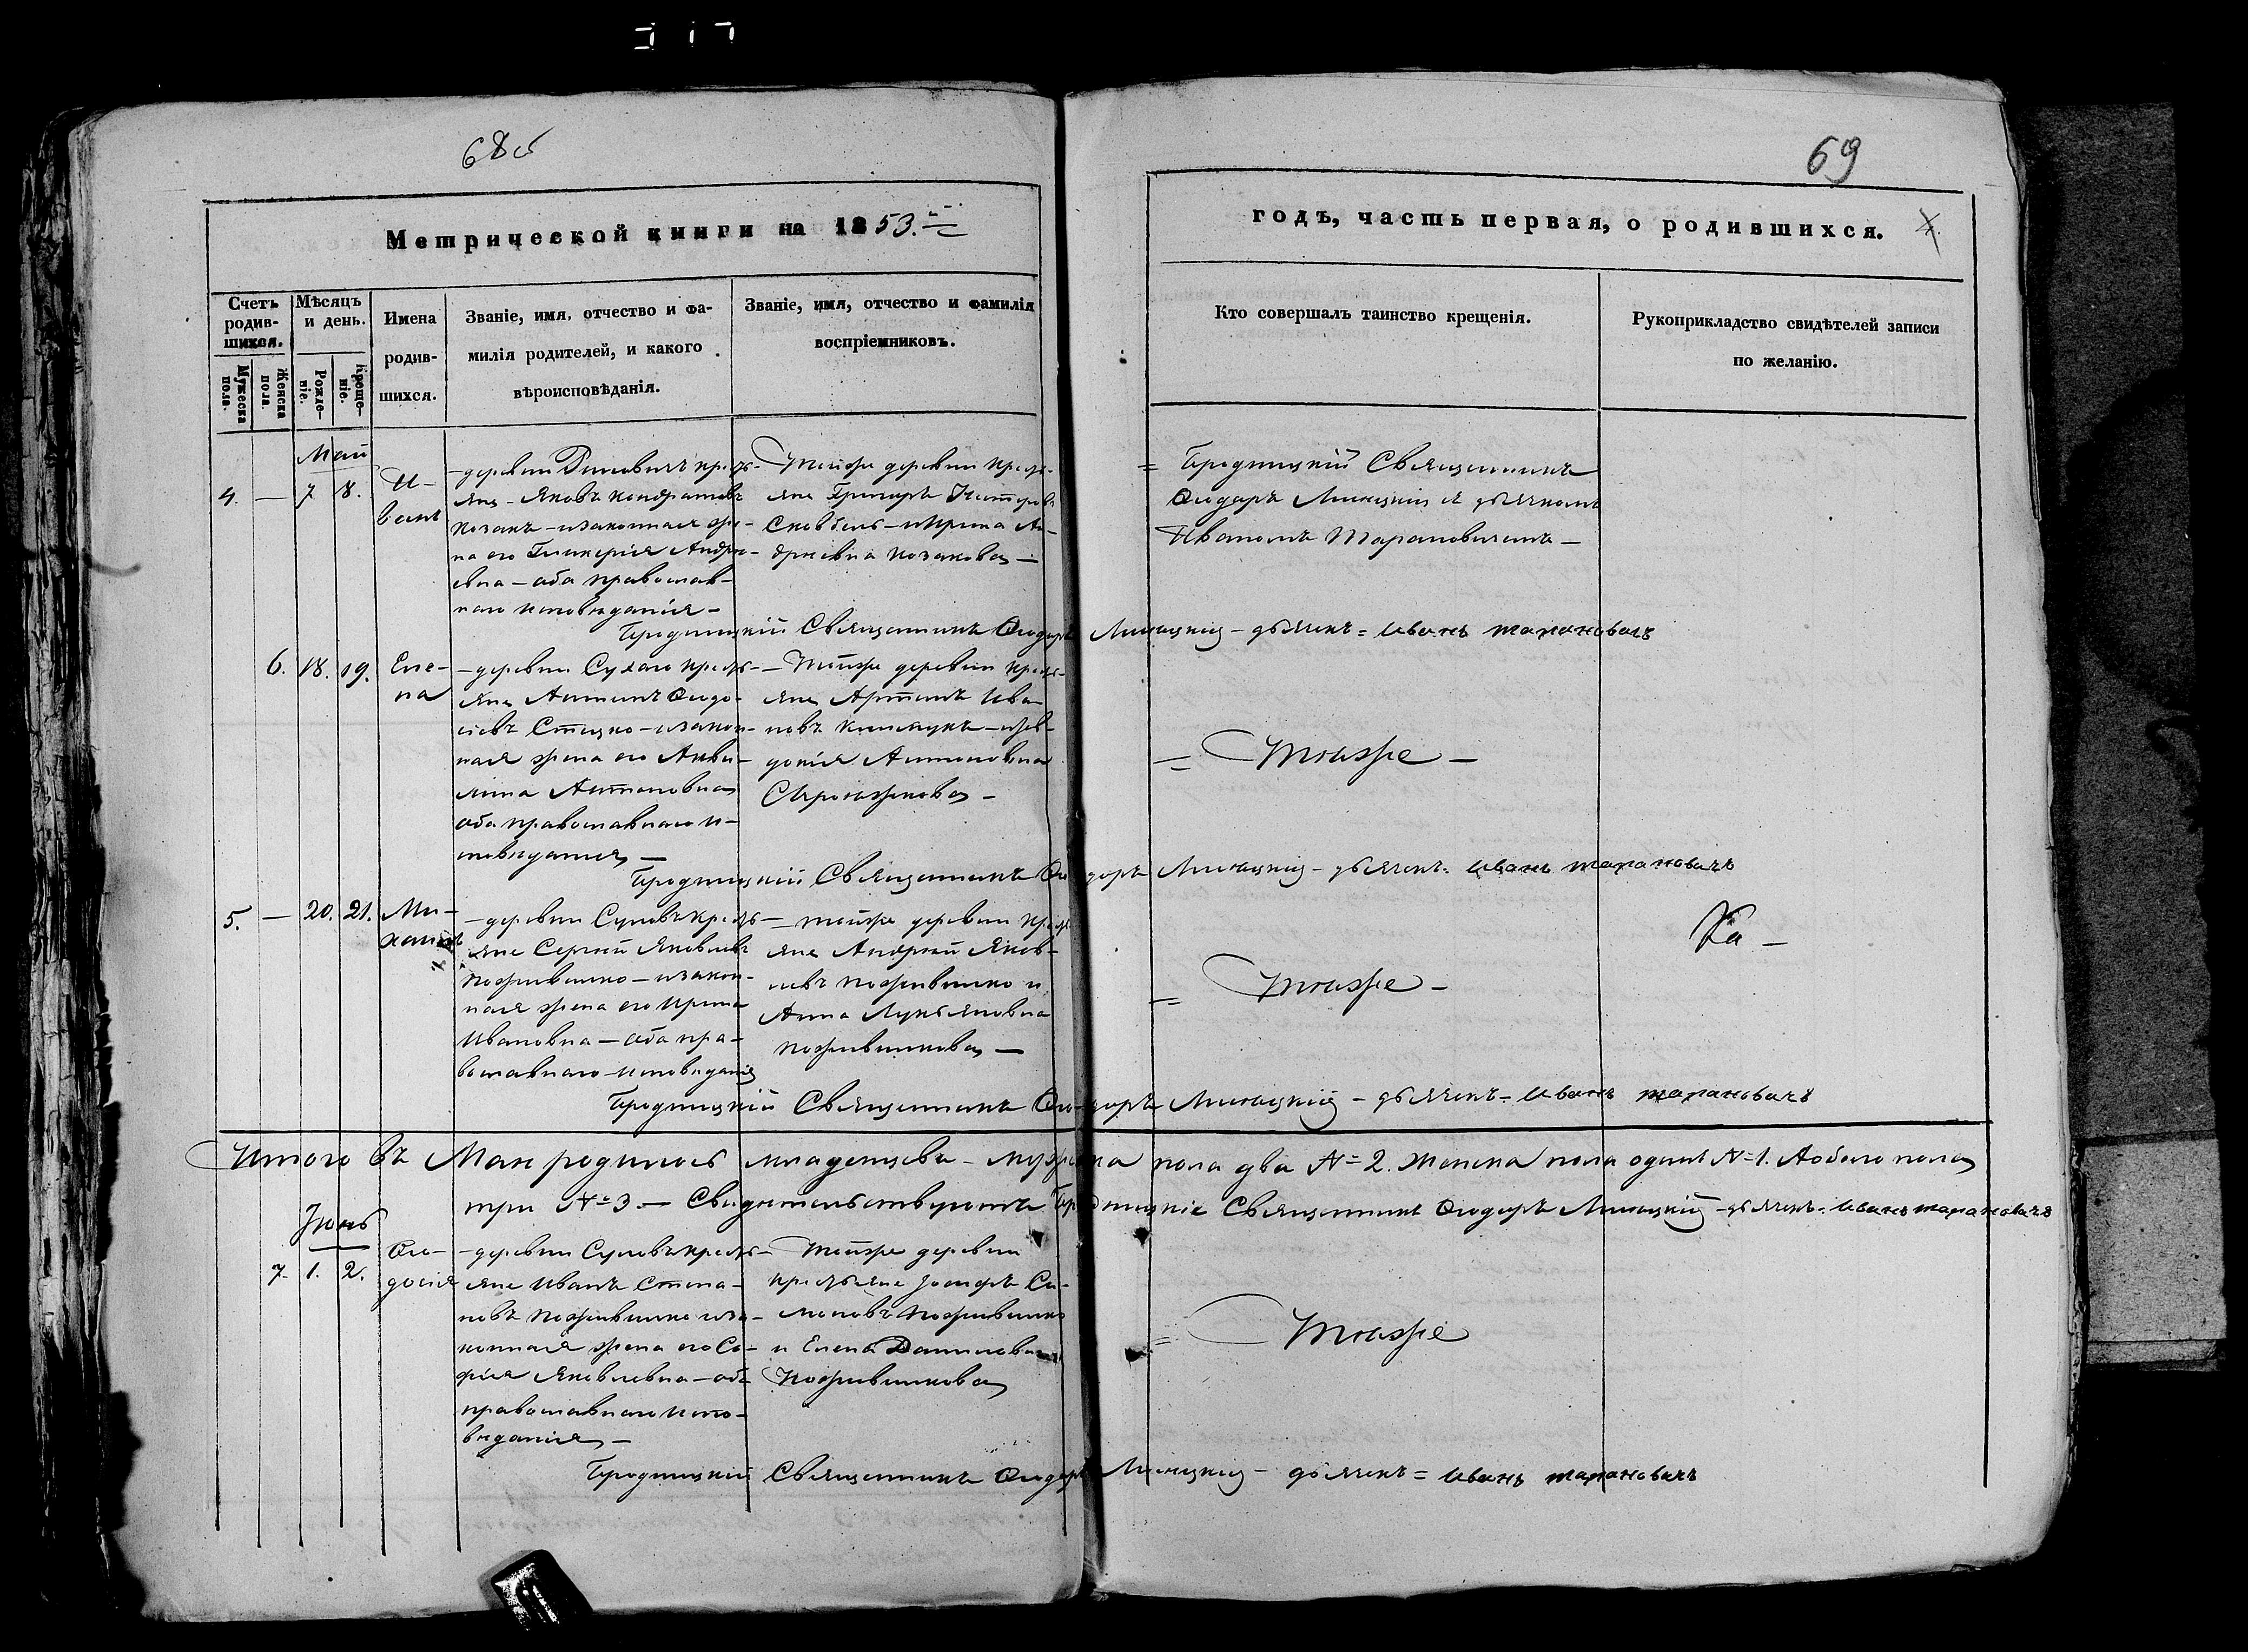 68об
69
Метрической книги на 1853.
годъ, часть первая, о родившихся.
4.
Счетъ родив-шихся.
Мужеска пола.
Женска пола.
Мѣсяцъ и день.
Рожде-ніе.
Креще-ніе.
Имена родив-шихся.
Званіе, имя, отчество и фа-
милія родителей, и какого
вѣроисповѣданія.
Званіе, имя, отчество и фамилія
воспріемниковъ.
Кто совершалъ таинство крещенія.
Рукоприкладство свидѣтелей записи
по желанію.
Май
4. — 7. 8.
И-
ванъ
–деревни кресть-
яне – Яковъ Кондратовъ
Козакъ – изаконная же-
на его Гликерія Андре-
евна – оба православ-
наго исповѣданія –
– Тойже деревни кресть-
яне Григоръ Несторовъ
Сковбель – и Ирина Ан-
дреевна Козакова –
= Бродницкій Священникъ
Ѳеодоръ Линицкій съ дьячкомъ
Иваномъ Тарановичемъ –
Бродницкій Священникъ Ѳеодоръ Линицкій – дьячекъ = Иванъ Тарановичъ
6. 18. 19.
Еле-
на
– деревни Сухаго кресть-
яне Антонъ Ѳеодо-
сіевъ Стецко – изакон-
ная жена его Акви-
лина Антоновна
оба православнаго и-
сповѣданія –
– Тойже деревни кресть-
яне Артемъ Ива-
новъ – иЕв-
докія Антоновна
Сыроежкова –
= Тоиже –
Бродницкій Священникъ Ѳеодоръ Линицкій – дьячекъ = Иванъ Тарановичъ
5. — 20. 21.
Ми-
хаилъ
– деревни кресть-
яне Сергій Яковлевъ
Поживилко – изакон-
ная жена его Ирина
Ивановна – оба пра-
вославнаго исповѣданія
– тойже деревни кресть-
яне Андрей Яков-
левъ Поживилко и
Анна Лукьяновна
Поживилкова –
= Тоиже –
Бродницкій Священникъ Ѳеодоръ Линицкій – дьячекъ = Иванъ Тарановичъ
Итого въ Маи родилось младенцевъ – мужеска пола два №=2. женска пола одинъ №=1. А обаго пола
три №=3. – Свидѣтельствуютъ Бродницкіе Священникъ Ѳеодоръ Линицкій – дьячекъ = Иванъ Тарановичъ
Іюнь
7. 1. 2.
Ѳео-
досія
– деревни кресть-
яне Иванъ Степа-
новъ Поживилко иза-
конная жена его Со-
фія Яковлевна – оба
православнаго испо-
вѣданія –
– Тойже деревни
крестьяне Іосифъ Си-
моновъ Поживилко
и Елена Даниловна
Поживилкова
= Тоиже
Бродницкій Священникъ Ѳеодоръ Линицкій – дьячекъ = Иванъ Тарановичъ